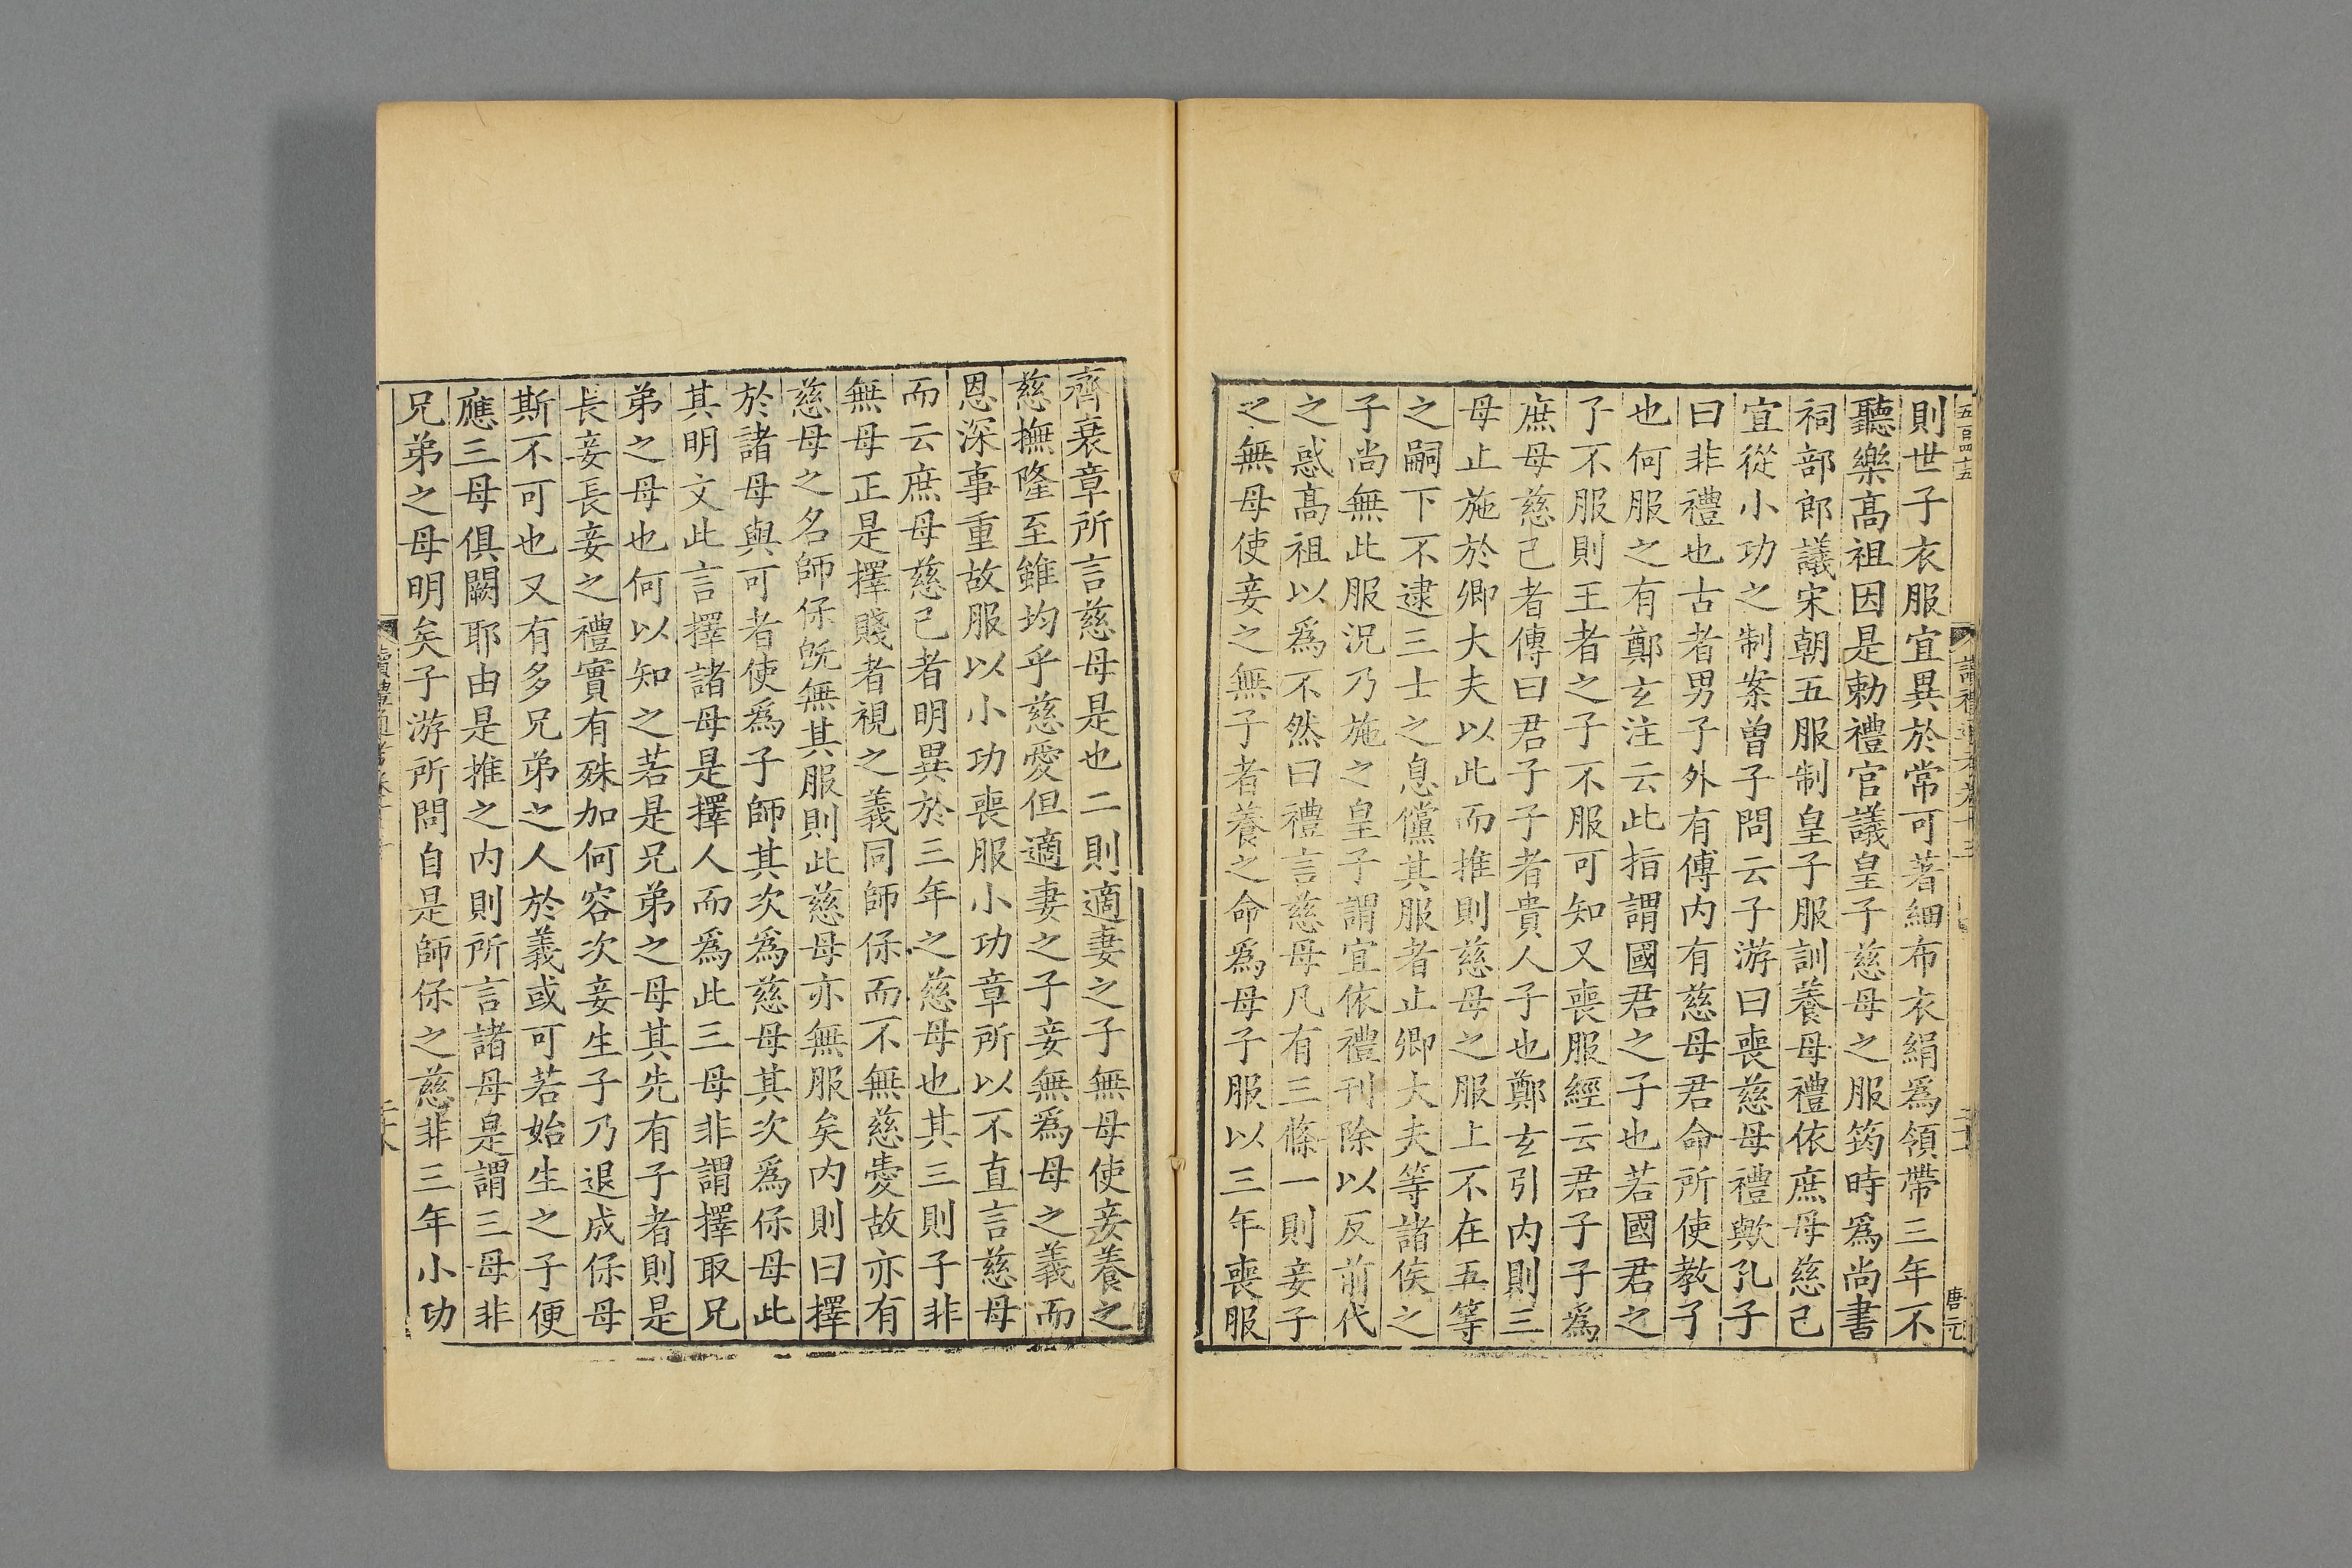 五百四十五
讀禮通考卷十三
唐元
則世子衣服宜異於常可著細布衣絹爲領帶三年不
聽樂髙祖因是勅禮官議皇子慈母之服筠時爲尚書
祠部郎議宋朝五服制皇子服訓養母禮依庶母慈己
宜從小功之制案曾子問云子游曰喪慈母禮歟孔子
曰非禮也古者男子外有傅内有慈母君命所使教子
也何服之有鄭玄注云此指謂國君之子也若國君之
子不服則王者之子不服可知又喪服經云君子子爲
庶母慈己者傳曰君子子者貴人子也鄭玄引内則三
母止施於卿大夫以此而推則慈母之服上不在五等
之嗣下不逮三士之息儻其服者止卿大夫等諸侯之
子尚無此服況乃施之皇子謂宜依禮刊除以反前代
之惑髙祖以爲不然曰禮言慈母凡有三條一則妾子
之無母使妾之無子者養之命爲母子服以三年喪服
齊衰章所言慈母是也二則適妻之子無母使妾養之
慈撫隆至雖均乎慈愛但適妻之子妾無爲母之義而
恩深事重故服以小功喪服小功章所以不直言慈母
而云庶母慈己者明異於三年之慈母也其三則子非
無母正是擇賤者視之義同師保而不無慈愛故亦有
慈母之名師保旣無其服則此慈母亦無服矣内則曰擇
於諸母與可者使爲子師其次爲慈母其次爲保母此
其明文此言擇諸母是擇人而爲此三母非謂擇取兄
弟之母也何以知之若是兄弟之母其先有子者則是
長妾長妾之禮實有殊加何容次妾生子乃退成保母
斯不可也又有多兄弟之人於義或可若始生之子便
應三母俱闕耶由是推之内則所言諸母是謂三母非
兄弟之母明矣子游所問自是師保之慈非三年小功
讀禮通考卷十